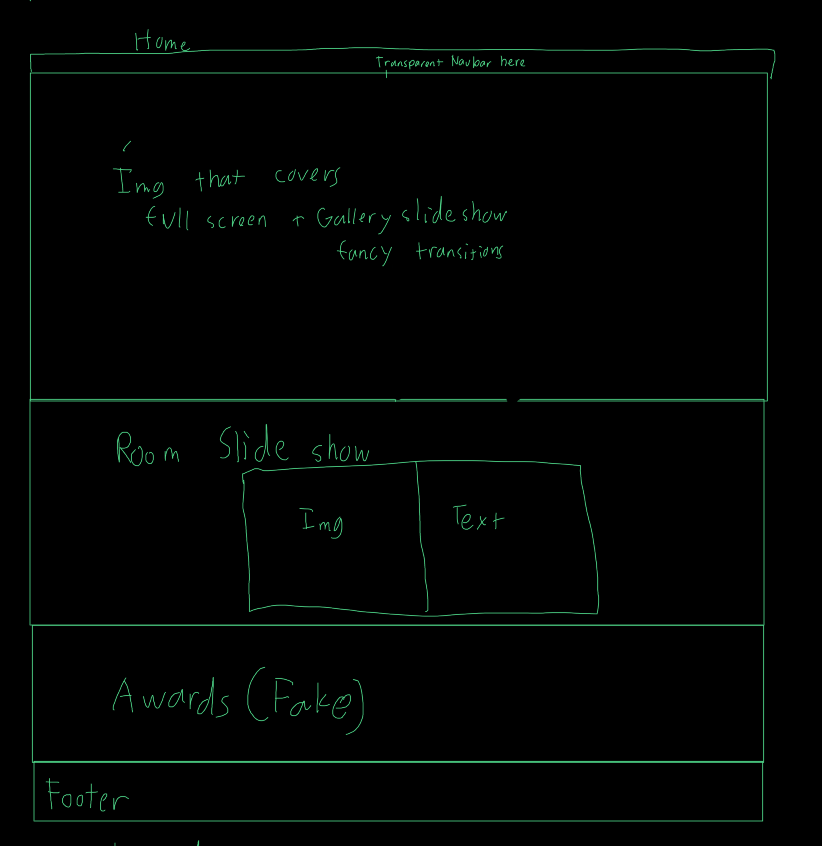 Home
Transparent Navbar here
Img that covers
full screen + Gallery slide show
fancy transitions
Room Slide show
Img
Text
Awards (Fake)
Footer